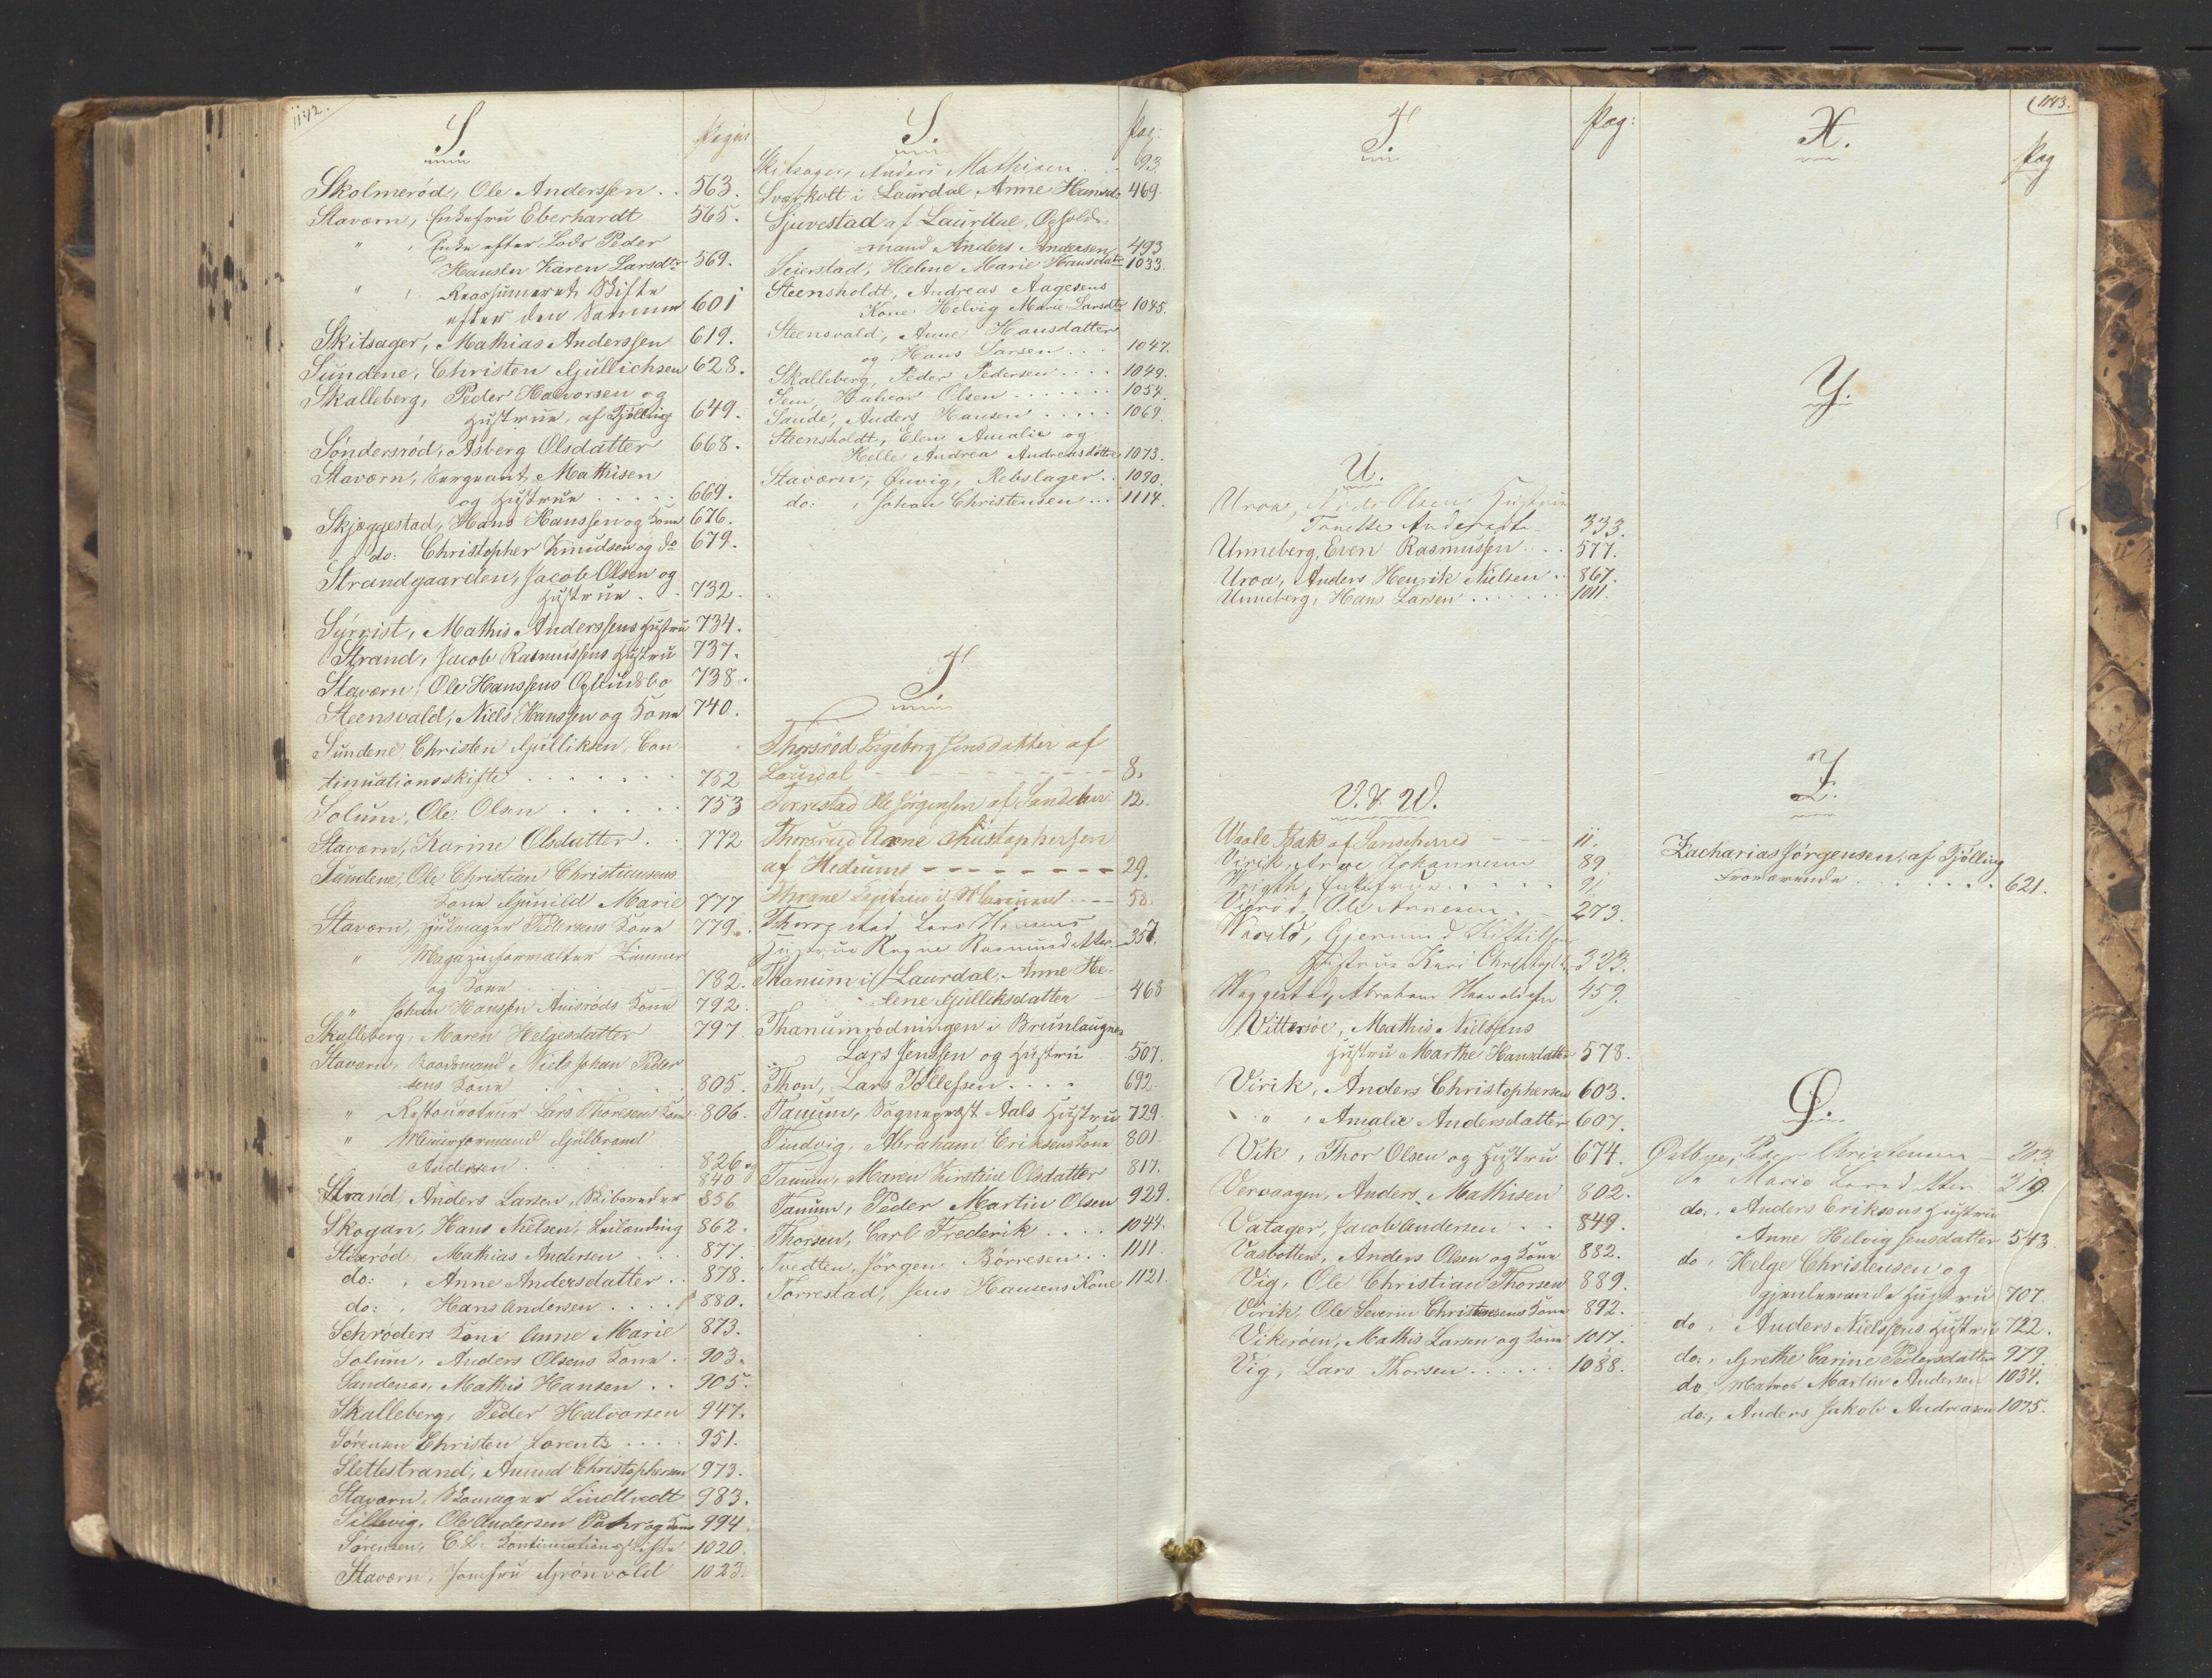 1142.
S.
Pagina
Skolmerød, Ole Anderssen . . 563.
Staværn, Enkefru Eberhardt 565.
" , Enke efter Lods Peder
Hansen Karen Larsdtr 569.
" , Reassumeret Skifte
efter den Samme 601
Skitsager, Mathias Anderssen 619.
Sundene, Christen Gullichsen 628.
Skalleberg, Peder Halvorsen og
Hustrue, af Tjølling 649.
Søndersrød, Asberg Olsdatter 668.
Staværn, Sergeant Mathisen
og Hustrue . . . . . 669.
Skjæggestad, Hans Hanssen og Kone 676.
do: Christopher Knudsen og do 679.
Strandgaarden, Jacob Olsen og
Hustrue . . 732.
Syrrist, Mathis Anderssens Hustru 734.
Strand, Jacob Rasmussens Hustru 737.
Stavern, Ole Hanssens Opbudsbo 738.
Steensvald, Niels Hanssen og Kone 740.
Sundene Christen Gulliksen, Con-
tinuationsskifte . . . . . . . 752
Solum, Ole Olsen . . . . . 753
Staværn, Karine Olsdatter . . 772
Sundene, Ole Christian Christiansens
Kone Gunild Marie 777
Staværn, Hjulmager Pedersens Kone 779.
" Magazinforvalter Zimmer
og Kone . . . . . 782.
" Johan Hanssen Auisrøds Kone 792.
Skalleberg, Maren Helgesdatter 797.
Staværn, Baadsmand Niels Johan Peder
sens Kone . . . . . 805.
" Restaurateur Lars Thoresens Kone 806.
" Muurformand Gulbrand
Andersen . . . . . 826 og
840
Strand, Anders Larsen, Skibsreder 856
Skogan, Hans Nielsen, Leilænding 862.
Stixrød, Mathias Andersen . . . 877.
do: , Anne Andersdatter . . 878.
do: , Hans Andersen . . . . 880.
Schrøders Kone Anne Marie 873.
Solum, Anders Olsens Kone . . 903.
Sandenæs, Mathis Hansen . . 905.
Skalleberg, Peder Halvorsen 947.
Sørensen Christen Lorentz . . . . 951.
Slettestrand, Amund Christophersen 973.
Staværn, Skomager Lindtvedt 983.
Sillevig, Ole Andersen og Kone 994.
Sørensen, C. L. Kontinuationsskifte 1020.
Staværn, Jomfru Grønvold 1023.
S.
Pag:
Skitsager, Anders Mathisen . . 93
Sværkolt i Laurdal Anne Hansdr 469.
Sjuvestad af Laurdal, Opholds-
mand Anders Andersen 493
Seierstad, Helene Marie Hansdatr 1033.
Steensholdt, Andreas Aagesens
Kone Helvig Marie Larsdtr 1045.
Steensvald, Anne Hansdatter
og Hans Larsen . . . 1047.
Skalleberg, Peder Pedersen . . . . 1049.
Sem, Halvor Olsen . . . . . . . 1054.
Sande, Anders Hansen . . . . . 1069.
Steensholdt, Elen Amalie og
Helle Andrea Andreasdøttre 1073.
Staværn, Øuvig, Rebslager . . 1090.
do: , Johan Christensen . . . 1114.
T
Thorsrød Ingeborg Jensdatter af
Laurdal - - - - - - - - 8.
Torrestad Ole Jørgensen af Sandeherr 12.
Thorsrud Arne Christophersen
af Hedrums - - - - - - - - 29.
Thrane Kapitain - - 58.
Thorrestad Lars Hansens
Hustrue Ragne Rasmusdatter - 357.
Thanum i Laurdal, Anne He-
lene Gulliksdatter - 468
Thanumrødningen i Brunlaugnes
Lars Jenssen og Hustru 507.
Thon, Lars Tollefsen . . . . 692
Tanum, Sognepræst Aals Hustru 729.
Tindvig, Abraham Eriksens Kone 801.
Tanum, Maren Kirstine Olsdatter 817.
Tanum, Peder Martin Olsen 929.
Thorsen, Carl Frederik . . . . 1044.
Tvedten, Jørgen Børresen . . 1111.
Torrestad, Jens Hansens Kone 1121.
T
Pag:
U.
Uroa, Niels Olsens Hustrue
Tonette Andersdtr 333.
Unneberg, Even Rasmussen . . . 577.
Uroa, Anders Henrik Nielsen . . 867.
Unneberg, Hans Larsen . . . . . . . 1011.
V. & W.
Waale Isak af Sandeherred - - - 11.
Virik, Arne Johannesen 89
Wrigth, Enkefrue . . . . . 91
Vigrød, Ole Arnesen . - 273.
Warild, Gjermund Kittilsen
Hustrue Kari Christophd. 323.
Waggestad, Abraham Haavoldsen 459.
Vittersøe, Mathis Nielssens
Hustru Marthe Hansdatter 578.
Virik, Anders Christophersen 603.
" , Amalie Andersdatter 607.
Vik, Thor Olsen og Hustru 674.
Vervaagen, Anders Mathisen 802.
Vatager, Jacob Andersen . . 849.
Vasbotten, Anders Olsen og Kone 882.
Vig, Ole Christian Thorsen 889.
Virik, Ole Severin Christensens Kone 892.
Vikerøen, Mathis Larsen og Kone 1017.
Vig, Lars Thorsen . . . . . 1088.
1143.
X.
Pag
Y.
Z.
Zacharias Jørgensen, af Tjølling
Fraværende . . . . . . . 621.
Ø.
Østbye, Peder Christensen - 203.
" Marie Larsdatter 319.
do: , Anders Eriksens Hustrue
Anne Helvig Jensdatter 543
do , Helge Christensen og
gjenlevende Hustru 707.
do , Anders Nielssens Hustrue 722.
do: , Grethe Carine Pedersdatter 979.
do , Matros Martin Andersen 1034.
do: , Anders Jakob Andreasen 1075.